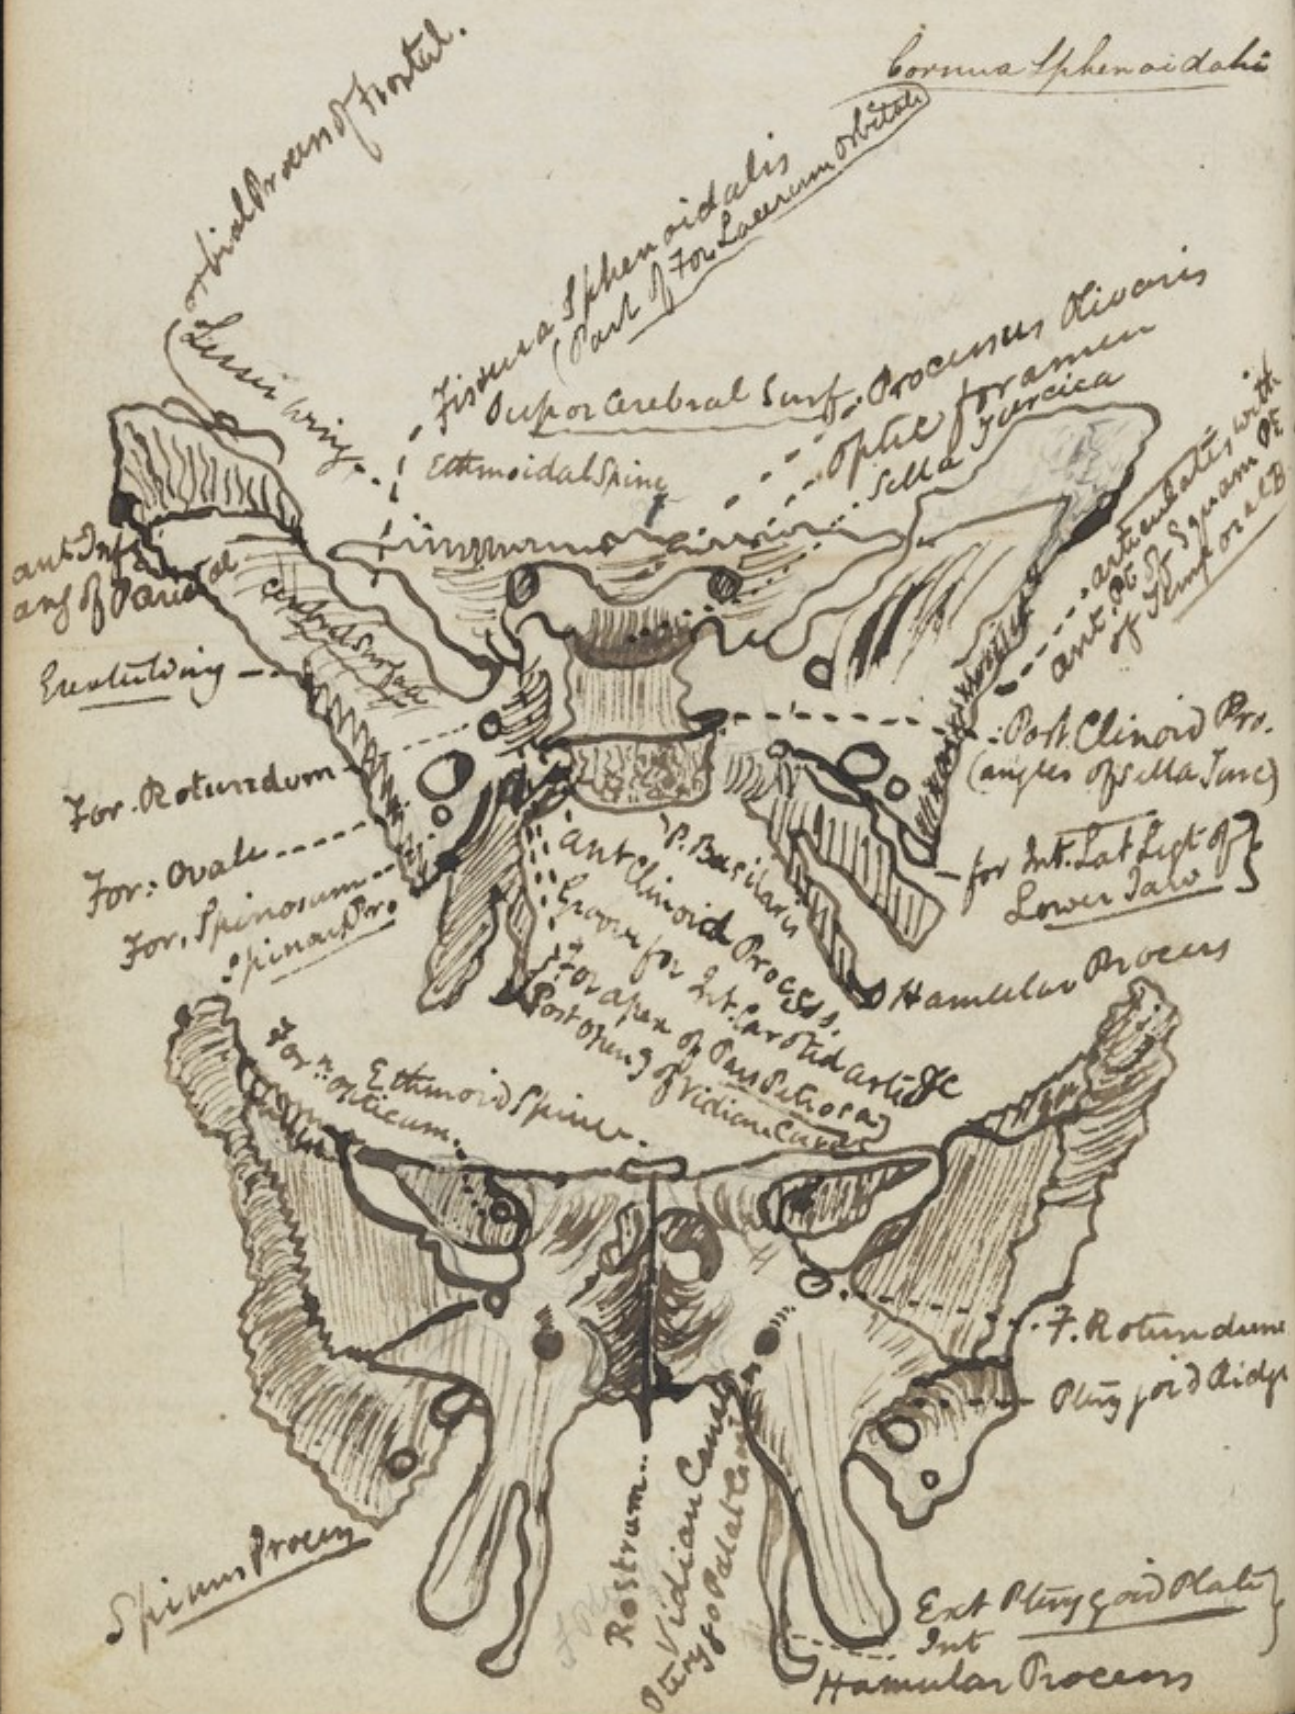 Cornua Sphenoidali
orbital Process of Frontal.
(Lesser wing.
Fissura Sphenoidalis
(Part of For. Lacerum orbitale)
Sup or Cerebral Surf.
Processus Olivaris
Ethmoidal Spine
optic foramen
Sella Turcica
articulates with
ant. Pt of Squam Pt
of Temporal B
ant Inf
ang of Parietal
Cerebral Surface
Great Wing
For. Rotundum
For: Ovale
For. Spinosum
Spinous Pro.
Post. Clinoid Pro.
(angles of Sella Turc)
for Int. Lat Ligt of
Lower Jaw
P. Basilaris
ant Clinoid Process.
Groove for Int. Carotid art &c
For apex of Pars Petrosa
Post openg of Vidian Canal
Hamular Process
Forn opticum.
Ethmoid Spine.
F. Rotundum
Pterygoid Ridge
Spinous Process
Rostrum
Vidian Canal
Pterygo Palat Canal
Ext Pterygoid Plate
Int
Hamular Process